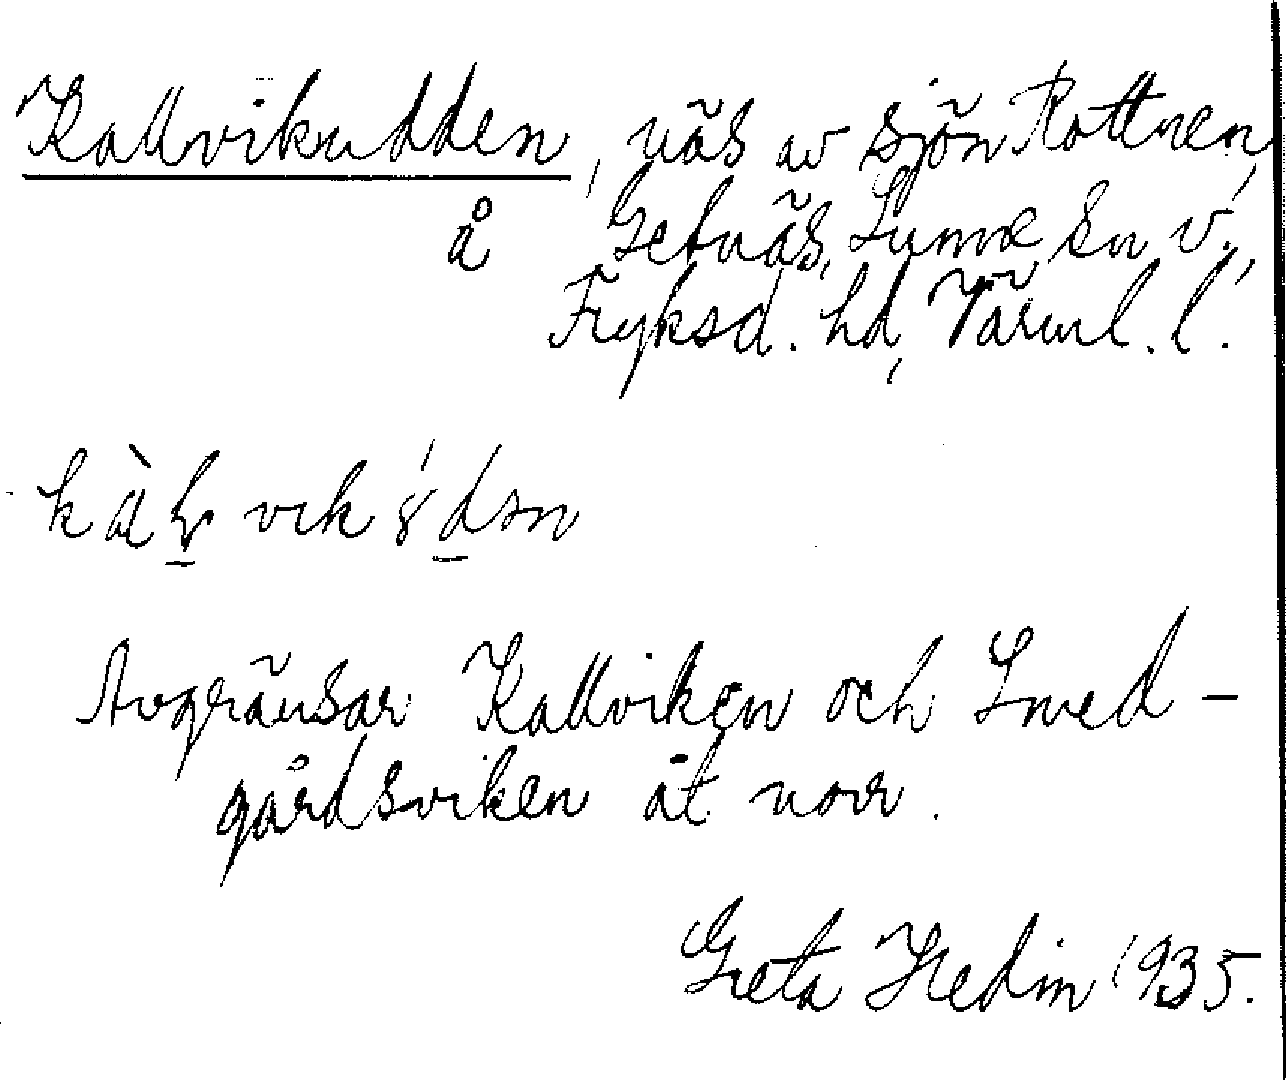 Kallvikudden, näs av sjön Rottnen,
å Getnäs, Sunne sn V.,
Fryksd. hd, Värml. l.
Avgränsar Kallviken och Smed-
gårdsviken åt norr.
Greta Hedin 1935.